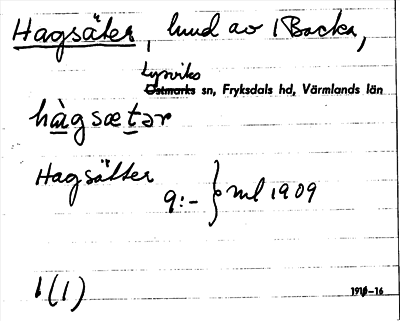 Hagsäter, hmd av 1 Backa,
Lysviks
Östmarks sn, Fryksdals hd, Värmlands län
hàgsætər
Hagsätter
9:- } ml 1909
b(1)
1916-16